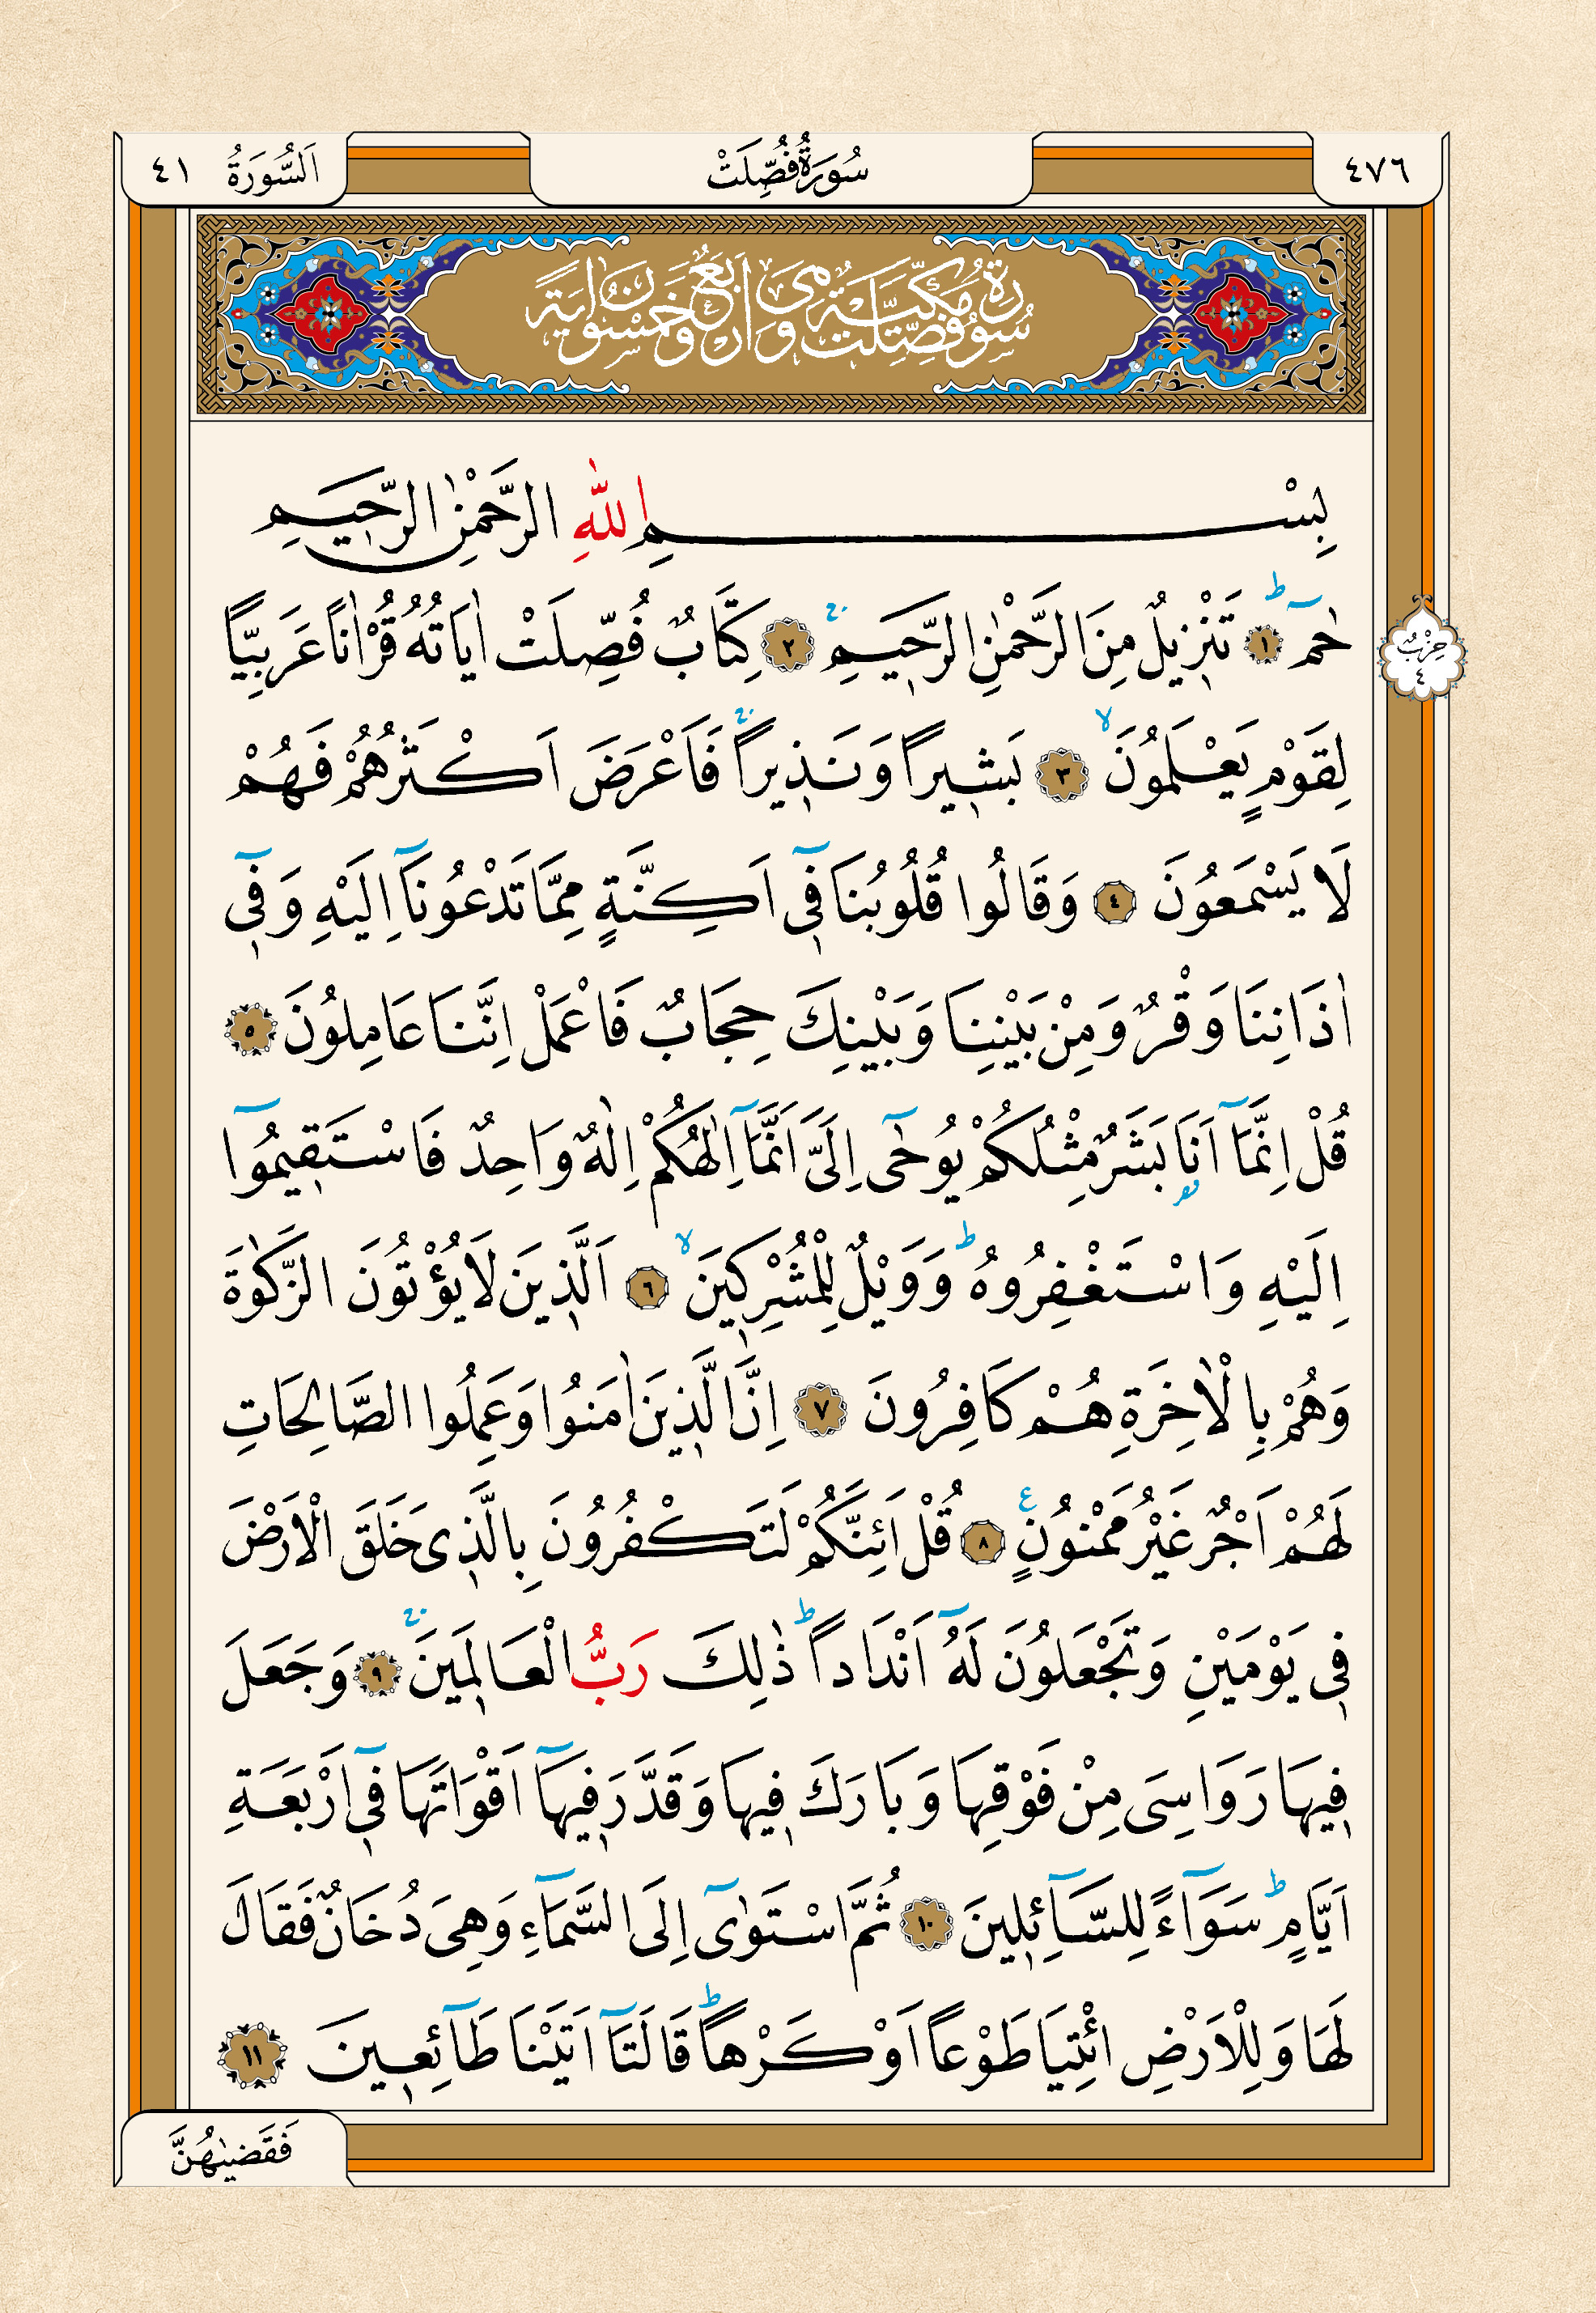 ٤٧٦
سُورَةُ فُصِّلَتْ
اَلسُّورَةُ ٤١
سُورَةُ فُصِّلَتْ مَكِّيَّةٌ وَهِىَ اَرْبَعٌ وَخَمْسُونَ اٰيَةً
بِسْمِ اللّٰهِ الرَّحْمٰنِ الرَّحٖيمِ
حٰمٓ ۜ ﴿١﴾ تَنْزٖيلٌ مِنَ الرَّحْمٰنِ الرَّحٖيمِ ۚ ﴿٢﴾ كِتَابٌ فُصِّلَتْ اٰيَاتُهُ قُرْاٰناً عَرَبِياًّ
حِزْبٌ
٤
لِقَوْمٍ يَعْلَمُونَ ۙ ﴿٣﴾ بَشٖيراً وَنَذٖيراً ۚ فَاَعْرَضَ اَكْثَرُهُمْ فَهُمْ
لَا يَسْمَعُونَ ﴿٤﴾ وَقَالُوا قُلُوبُنَا فٖٓى اَكِنَّةٍ مِمَّا تَدْعُونَٓا اِلَيْهِ وَفٖٓى
اٰذَانِنَا وَقْرٌ وَمِنْ بَيْنِنَا وَبَيْنِكَ حِجَابٌ فَاعْمَلْ اِنَّنَا عَامِلُونَ ﴿٥﴾
قُلْ اِنَّمَٓا اَنَا۬ بَشَرٌ مِثْلُكُمْ يُوحٰٓى اِلَىَّ اَنَّمَٓا اِلٰهُكُمْ اِلٰهٌ وَاحِدٌ فَاسْتَقٖيمُٓوا
اِلَيْهِ وَاسْتَغْفِرُوهُ ۜ وَوَيْلٌ لِلْمُشْرِكٖينَ ۙ ﴿٦﴾ اَلَّذٖينَ لَا يُؤْتُونَ الزَّكٰوةَ
وَهُمْ بِالْاٰخِرَةِ هُمْ كَافِرُونَ ﴿٧﴾ اِنَّ الَّذٖينَ اٰمَنُوا وَعَمِلُوا الصَّالِحَاتِ
لَهُمْ اَجْرٌ غَيْرُ مَمْنُونٍ ع ﴿٨﴾ قُلْ اَئِنَّكُمْ لَتَكْفُرُونَ بِالَّذٖى خَلَقَ الْاَرْضَ
فٖى يَوْمَيْنِ وَتَجْعَلُونَ لَهُٓ اَنْدَاداً ۜ ذٰلِكَ رَبُّ الْعَالَمٖينَ ۚ ﴿٩﴾ وَجَعَلَ
فٖيهَا رَوَاسِىَ مِنْ فَوْقِهَا وَبَارَكَ فٖيهَا وَقَدَّرَ فٖيهَٓا اَقْوَاتَهَا فٖٓى اَرْبَعَةِ
اَيَّامٍ ۜ سَوَٓاءً لِلسَّٓائِلٖينَ ﴿١٠﴾ ثُمَّ اسْتَوٰٓى اِلَى السَّمَٓاءِ وَهِىَ دُخَانٌ فَقَالَ
لَهَا وَلِلْاَرْضِ ائْتِيَا طَوْعاً اَوْ كَرْهاً ۜ قَالَتَٓا اَتَيْنَا طَٓائِعٖينَ ﴿١١﴾
فَقَضٰيهُنَّ